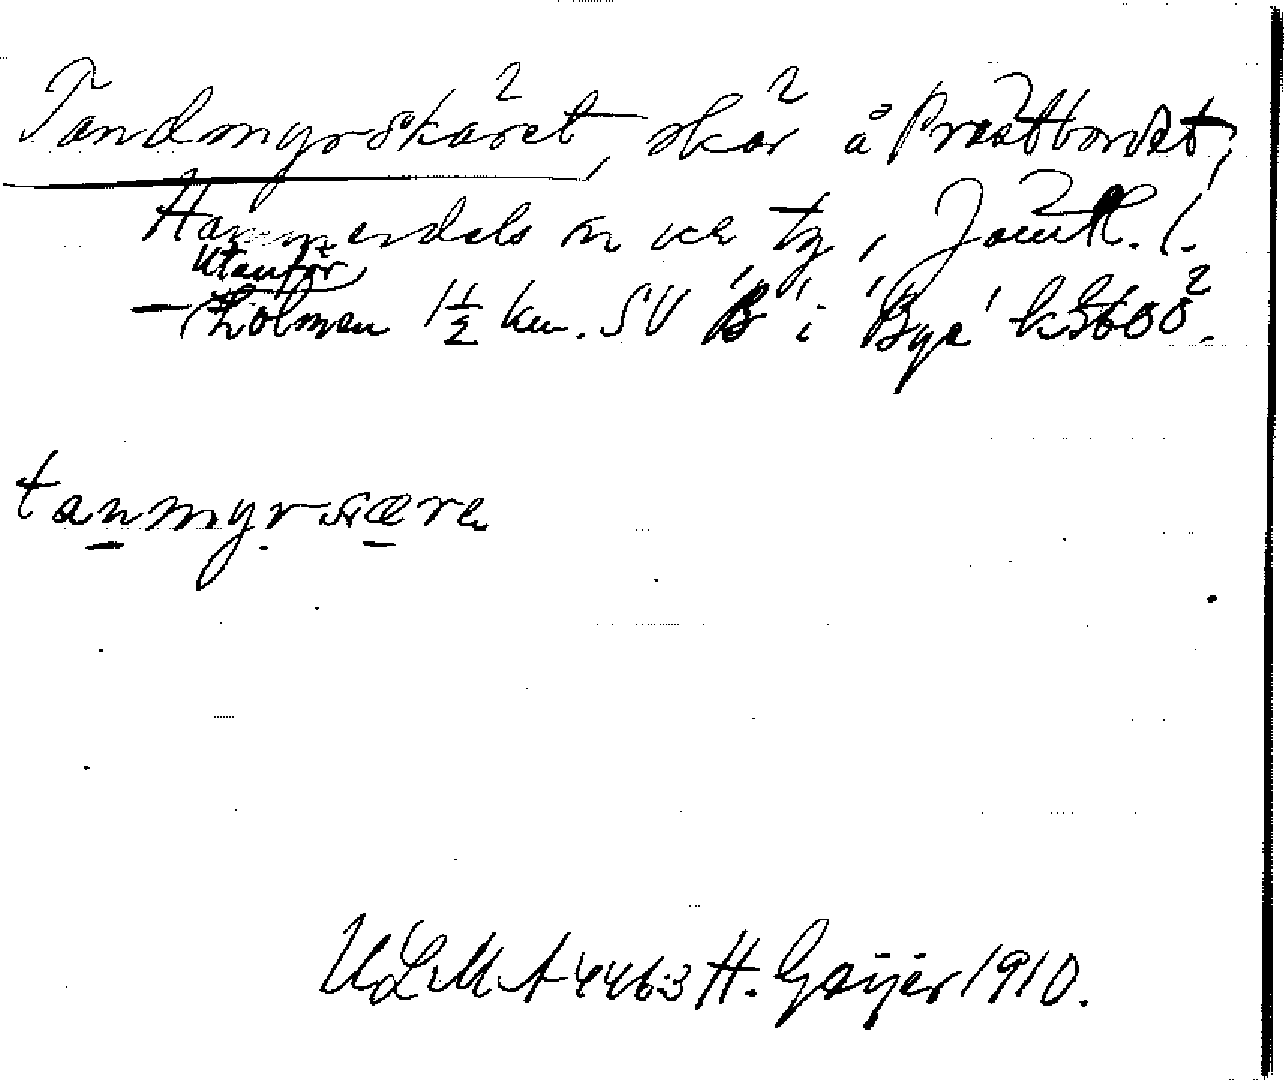 Tandmyrskäret, skär å Prästbordet,
Hammerdals sn och tg, Jämtl. l.
utanför
holmen 1 1/2 km. SV 'B' i 'Bye' k3600².
tanmyrsæra
ULMA 4463 H. Geijer 1910.